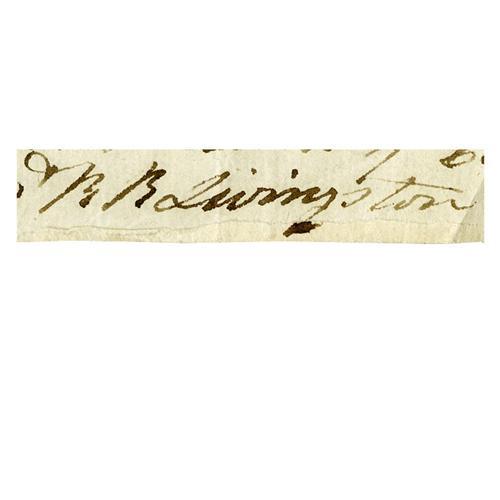 & R R Livingston